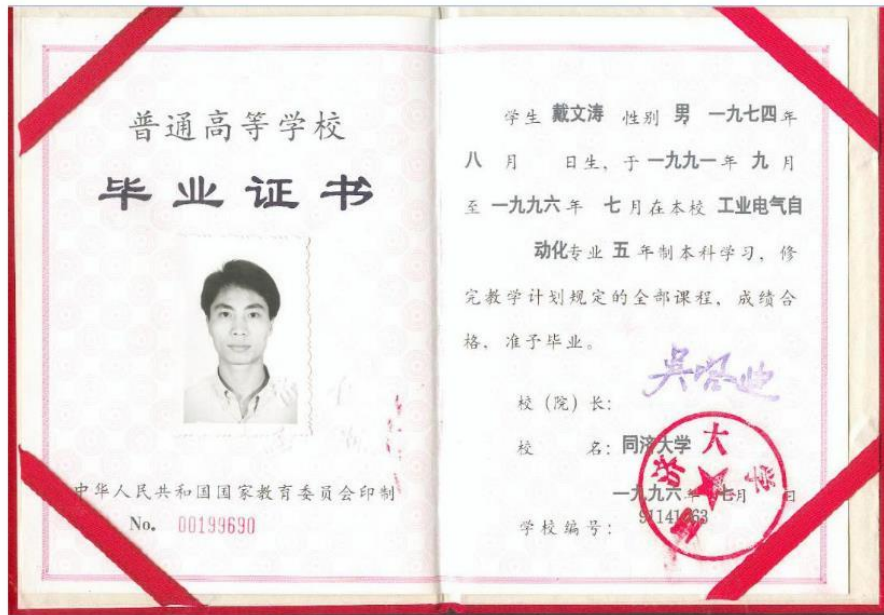 普通高等学校
毕业证书
中华人民共和国国家教育委员会印制
No. 00199690
学生 戴文涛 性别 男, 一九七四年
八 月 日生, 于 一九九一 年 九 月
至 一九九六 年 七 月在本校 工业电气自
动化专业 五 年制本科学习, 修
完教学计划规定的全部课程, 成绩合
格, 准予毕业。
吴启迪
校 (院) 长:
校 名: 同济大学
一九九六 年 七月 日
学校编号: